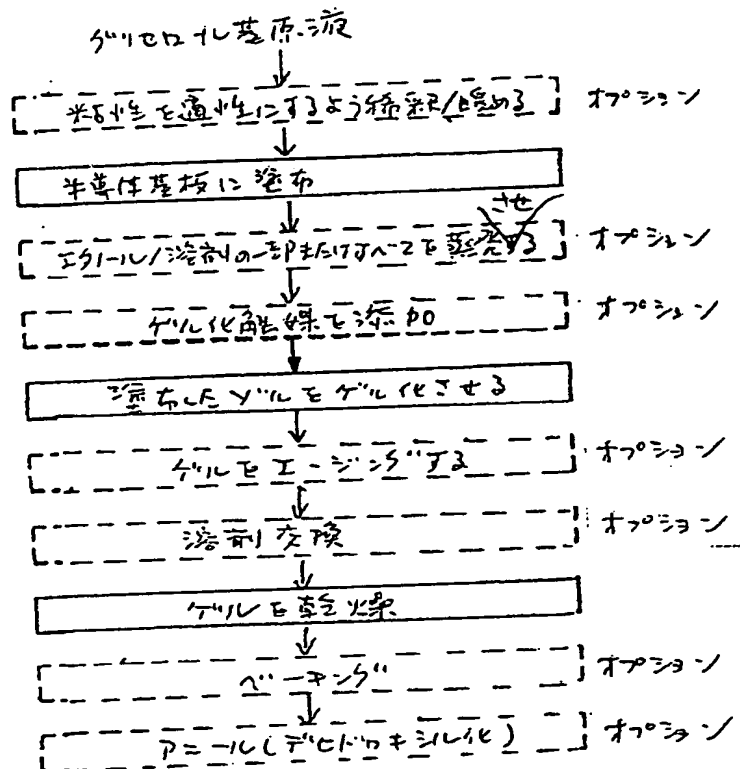 グリセロール基原液
粘性を適性にするよう稀釈/暖める オプション
半導体基板に塗布
させ
エタノール/溶剤の一部またはすべてを蒸発する オプション
ゲル化触媒を添加 オプション
塗布したゾルをゲル化させる
ゲルをエージングする オプション
溶剤交換 オプション
ゲルを乾燥
ベーキング オプション
アニール(デヒドロキシル化) オプション